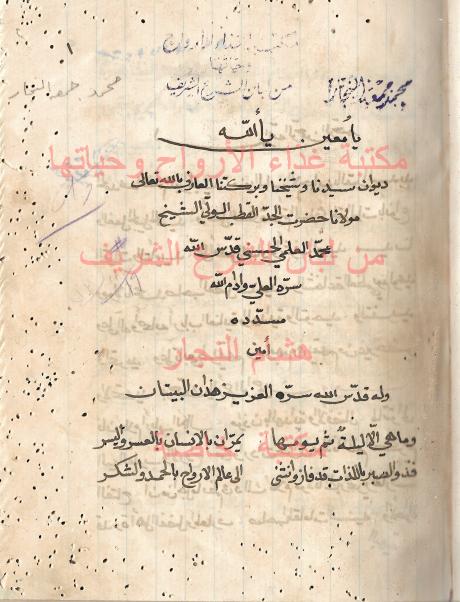 مكتبة غذاء الأرواح
وحياتها
من بيان الشرع الشريف
محمد جمعة النجار
محمد جمعة النجار
يا معين يا الله
مكتبة غذاء الأرواح وحياتها
ديوان سيدنا وشيخنا وبركتنا العارف بالله تعالى
مولانا حضرت الجد القطب الولي الشيخ
محمد العلمي الحسيني قدس الله
من بيان الشرع الشريف
سره العلي وادام الله
مدده
هشام النجار
امين
وله قدس الله سره العزيز هذان البيتان
وما هي الا ليلة ثم يومها يمران بالانسان بالعسر واليسر
مكتبة خاصة
فذو الصبر باللذات قد فاز وانثنى الى عالم الارواح بالحمد والشكر